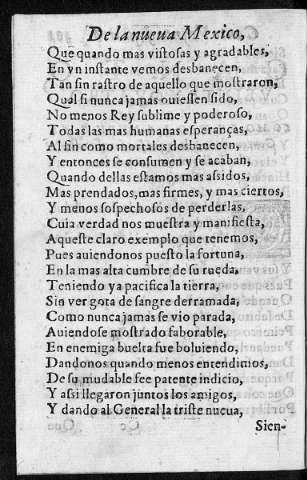 De la nueua Mexico,
Que quando mas vistosas y agradables,
En vn instante vemos desbanecen,
Tan sin rastro de aquello que mostraron,
Qual si nunca jamas ouiessen sido,
No menos Rey sublime y poderoso,
Todas las mas humanas esperanças,
Al fin como mortales desbanecen,
Y entonces se consumen y se acaban,
Quando dellas estamos mas assidos,
Mas prendados, mas firmes, y mas ciertos,
Y menos sospechosos de perderlas,
Cuia verdad nos muestra y manifiesta,
Aqueste claro exemplo que tenemos,
Pues auiendonos puesto la fortuna,
En la mas alta cumbre de su rueda,
Teniendo ya pacifica la tierra,
Sin ver gota de sangre derramada,
Como nunca jamas se vio parada,
Auiendose mostrado faborable,
En enemiga buelta fue boluiendo,
Dandonos quando menos entendimos,
De su mudable fee patente indicio,
Y assi llegaron juntos los amigos,
Y dando al General la triste nueua,
Sien-